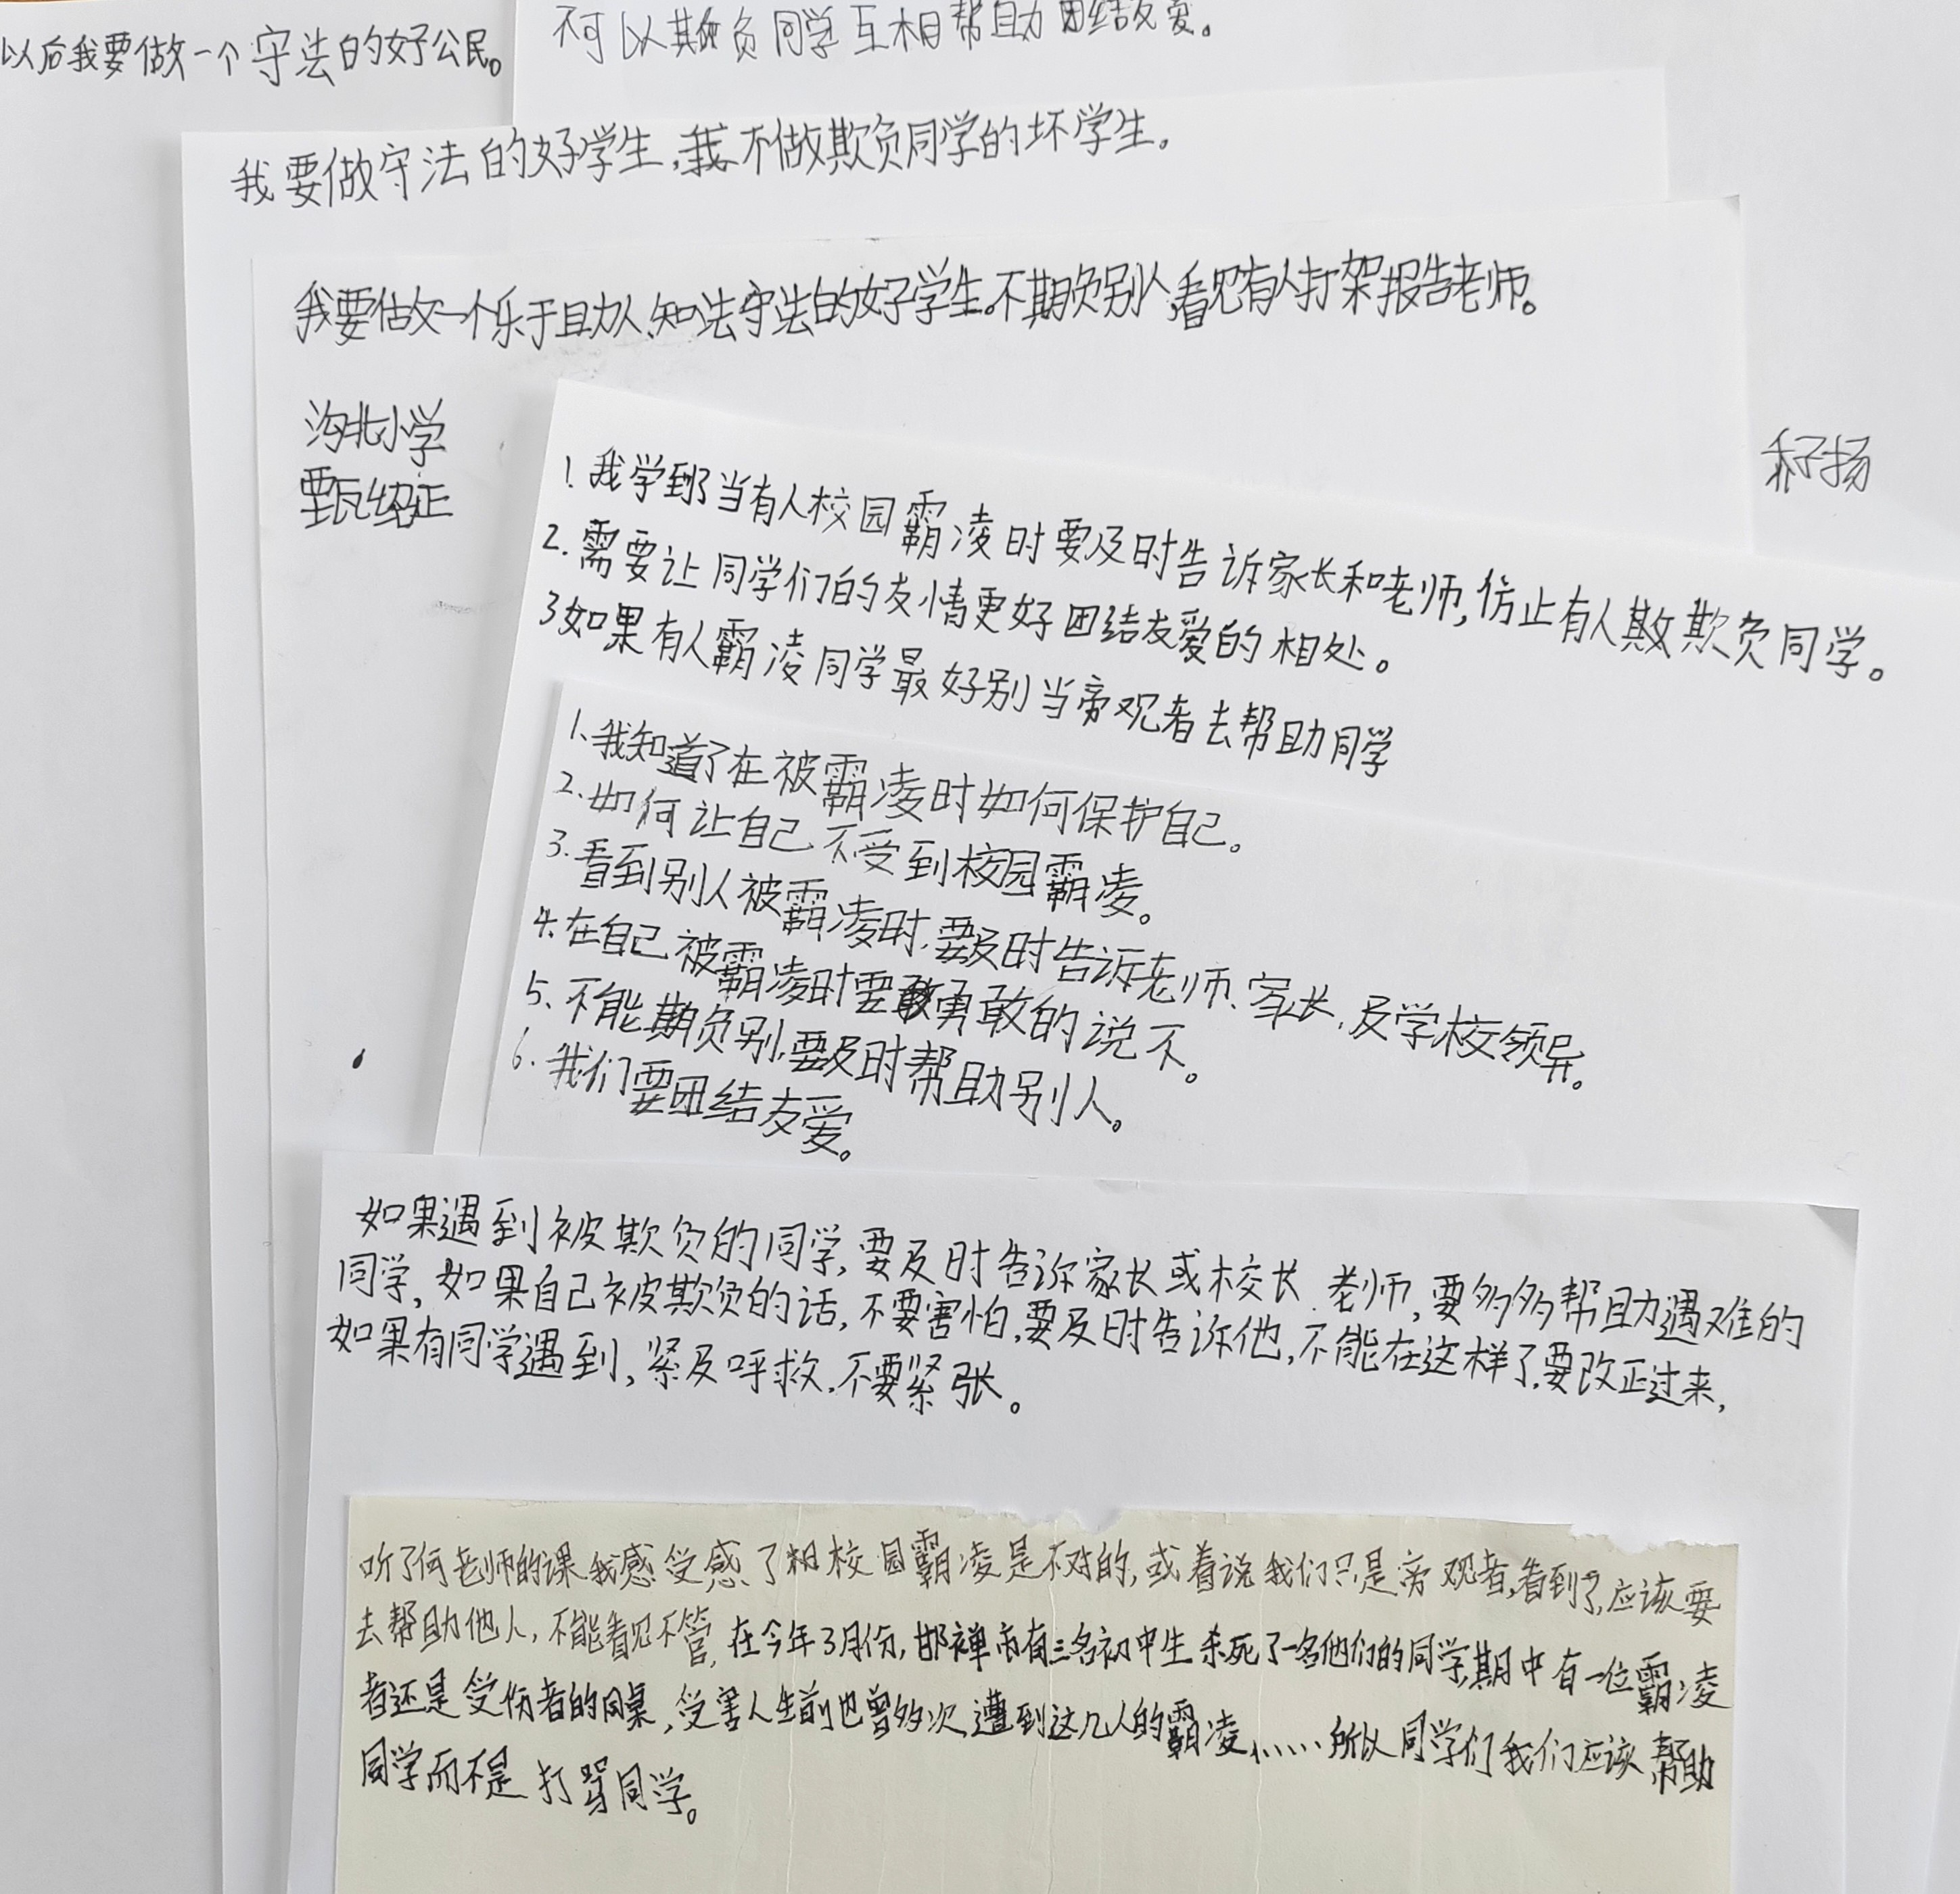 以后我要做一个守法的好公民。
不可以欺负同学互相帮助团结友爱。
我要做守法的好学生,我不做欺负同学的坏学生。
我要做一个乐于助人、知法守法的好学生。不期负别人,看见有人打架报告老师。
沟北小学
甄绍正
子扬
1. 我学到了当有人校园霸凌时要及时告诉家长和老师,仿止有人欺负同学。
2. 需要让同学们的友情更好团结友爱的相处。
3如果有人霸凌同学最好别当旁观者去帮助同学
1、我知道了在被霸凌时如何保护自己。
2. 如何让自己不受到校园霸凌。
3. 看到别人被霸凌时,要及时告诉老师、家长,及学校领导。
4. 在自己被霸凌时要勇敢的说不。
5、不能期负别,要及时帮助别人。
6. 我们要团结友爱。
如果遇到被欺负的同学,要及时告诉家长或校长.老师,要多多帮助遇难的
同学,如果自己被欺负的话,不要害怕,要及时告诉他,不能在这样了,要改正过来,
如果有同学遇到,紧及呼救,不要紧张。
听了何老师的课我感受感了校园霸凌是不对的,或着说我们只是旁观者,看到了,应该要
去帮助他人,不能看见不管,在今年3月份,邯禅市有三名初中生杀死了一名他们的同学,期中有一位霸凌
者还是受伤者的同桌,受害人生前也曾多次遭到这几人的霸凌,……所以同学们我们应该帮助
同学而不是打骂同学。